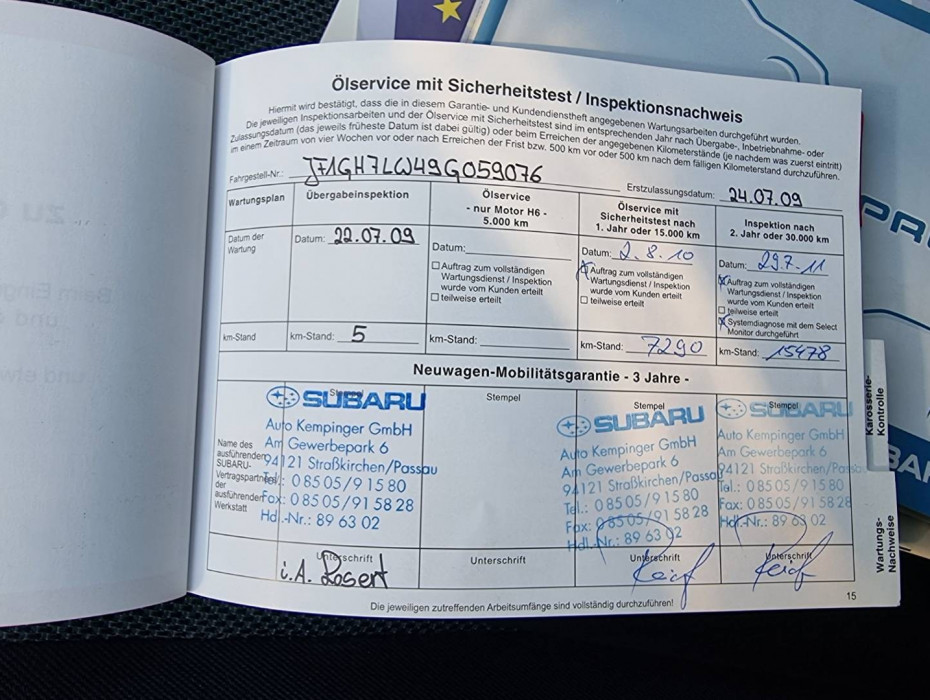 Ölservice mit Sicherheitstest / Inspektionsnachweis
Hiermit wird bestätigt, dass die in diesem Garantie- und Kundendienstheft angegebenen Wartungsarbeiten durchgeführt wurden.
Die jeweiligen Inspektionsarbeiten und der Ölservice mit Sicherheitstest sind im entsprechenden Jahr nach Übergabe-, Inbetriebnahme- oder
Zulassungsdatum (das jeweils früheste Datum ist dabei gültig) oder beim Erreichen der angegebenen Kilometerstände (je nachdem was zuerst eintritt)
im einem Zeitraum von vier Wochen vor oder nach Erreichen der Frist bzw. 500 km vor oder 500 km nach dem fälligen Kilometerstand durchzuführen.
Fahrgestell-Nr.: JF1GH7LW49G059076 Erstzulassungsdatum: 24.07.09
Wartungsplan
Übergabeinspektion
Ölservice
- nur Motor H6 -
5.000 km
Ölservice mit
Sicherheitstest nach
1. Jahr oder 15.000 km
Inspektion nach
2. Jahr oder 30.000 km
Datum der
Wartung
Datum: 22.07.09
Datum:
Auftrag zum vollständigen
Wartungsdienst / Inspektion
wurde vom Kunden erteilt
teilweise erteilt
Datum: 2.8.10
Auftrag zum vollständigen
Wartungsdienst / Inspektion
wurde vom Kunden erteilt
teilweise erteilt
Datum: 29.7.11
Auftrag zum vollständigen
Wartungsdienst / Inspektion
wurde vom Kunden erteilt
teilweise erteilt
Systemdiagnose mit dem Select
Monitor durchgeführt
km-Stand
km-Stand: 5
km-Stand:
km-Stand: 7290
km-Stand: 15478
Neuwagen-Mobilitätsgarantie - 3 Jahre -
Name des
ausführenden
SUBARU-
Vertragspartners
der
ausführenden
Werkstatt
Stempel
SUBARU
Auto Kempinger GmbH
Am Gewerbepark 6
94121 Straßkirchen/Passau
Tel.: 0 85 05 / 9 15 80
Fax: 0 85 05 / 91 58 28
Hdl.-Nr.: 89 63 02
Stempel
Stempel
SUBARU
Auto Kempinger GmbH
Am Gewerbepark 6
94121 Straßkirchen/Passau
Tel.: 0 85 05 / 9 15 80
Fax: 0 85 05 / 91 58 28
Hdl.-Nr.: 89 63 02
Stempel
SUBARU
Auto Kempinger GmbH
Am Gewerbepark 6
94121 Straßkirchen/Passau
Tel.: 0 85 05 / 9 15 80
Fax: 0 85 05 / 91 58 28
Hdl.-Nr.: 89 63 02
Unterschrift
i.A. Rosert
Unterschrift
Unterschrift
Unterschrift
Die jeweiligen zutreffenden Arbeitsumfänge sind vollständig durchzuführen!
15
Karosserie-
Kontrolle
Wartungs-
Nachweise